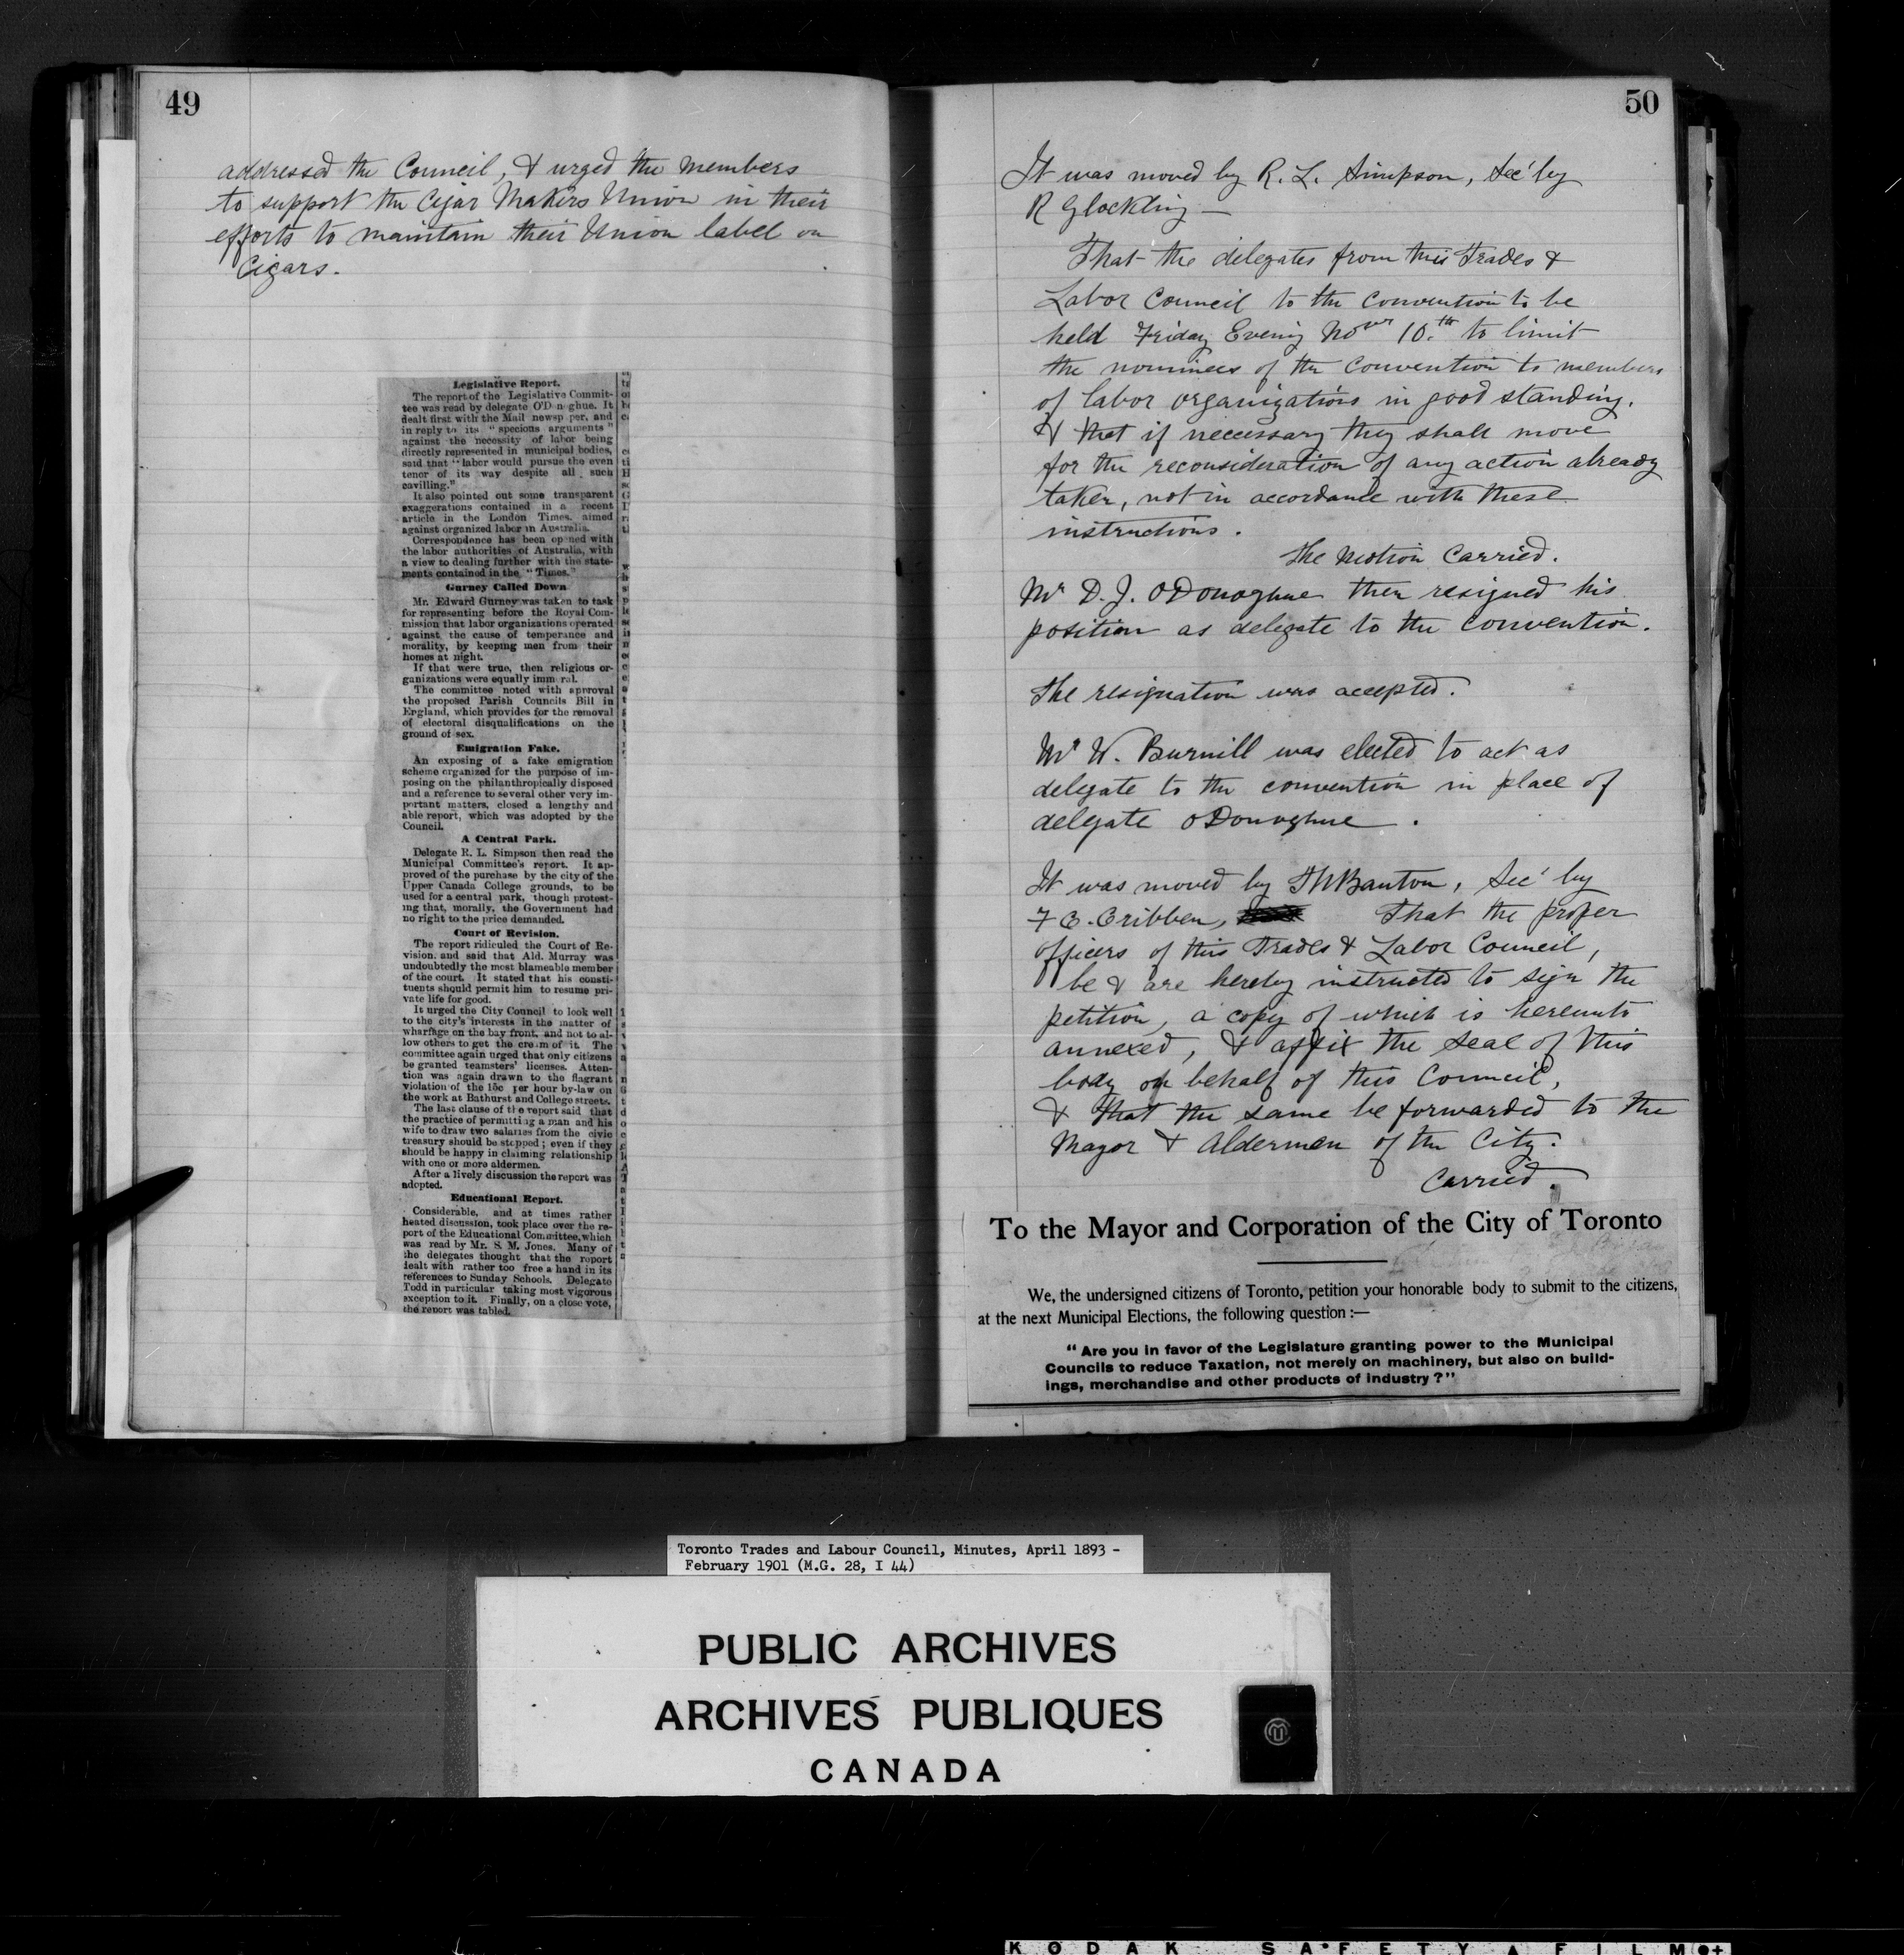 49
addressed the Council, & urged the members
to support the Cigar Makers Union in their
efforts to maintain their Union label on
Cigars.
Legislative Report.
The report of the Legislative Commit-
tee was read by delegate O'D n ghue. It
dealt first with the Mail newsp per, and
in reply to its "specious arguments"
against the necessity of labor being
directly represented in municipal bodies,
said that "labor would pursue the even
tenor of its way despite all such
cavilling."
It also pointed out some transparent
exaggerations contained in a recent
article in the London Times, aimed
against organized labor in Australia.
Correspondence has been opened with
the labor authorities of Australia, with
a view to dealing further with the state-
ments contained in the "Times."
Gurney Called Down
Mr. Edward Gurney was taken to task
for representing before the Royal Com-
mission that labor organizations operated
against the cause of temperance and
morality, by keeping men from their
homes at night.
If that were true, then religious or-
ganizations were equally imm ral.
The committee noted with approval
the proposed Parish Councils Bill in
England, which provides for the removal
of electoral disqualifications on the
ground of sex.
Emigration Fake.
An exposing of a fake emigration
scheme organized for the purpose of im-
posing on the philanthropically disposed
and a reference to several other very im-
portant matters, closed a lengthy and
able report, which was adopted by the
Council.
A Central Park.
Delegate R. L. Simpson then read the
Municipal Committee's report. It ap-
proved of the purchase by the city of the
Upper Canada College grounds, to be
used for a central park, though protest-
ing that, morally, the Government had
no right to the price demanded.
Court of Revision.
The report ridiculed the Court of Re-
vision, and said that Ald. Murray was
undoubtedly the most blameable member
of the court. It stated that his consti-
tuents should permit him to resume pri-
vate life for good.
It urged the City Council to look well
to the city's interests in the matter of
wharfage on the bay front, and not to al-
low others to get the cream of it. The
committee again urged that only citizens
be granted teamsters' licenses. Atten-
tion was again drawn to the flagrant
violation of the 15c per hour by-law on
the work at Bathurst and College streets.
The last clause of the report said that
the practice of permitting a man and his
wife to draw two salaries from the civic
treasury should be stopped; even if they
should be happy in claiming relationship
with one or more aldermen.
After a lively discussion the report was
adopted.
Educational Report.
Considerable, and at times rather
heated discussion, took place over the re-
port of the Educational Committee, which
was read by Mr. S. M. Jones. Many of
the delegates thought that the report
dealt with rather too free a hand in its
references to Sunday Schools. Delegate
Todd in particular taking most vigorous
exception to it. Finally, on a close vote,
the report was tabled.
50
It was moved by R. L. Simpson, Sec' by
R Glockling —
That the delegates from this Trades &
Labor Council to the Convention to be
held Friday Evening Nover 10.th to limit
the nominees of the Convention to members
of labor organizations in good standing.
& that if necessary they shall move
for the reconsideration of any action already
taken, not in accordance with these
instructions.
The Motion Carried.
Mr D. J. ODonoghue then resigned his
position as delegate to the Convention.
The resignation was accepted.
Mr W. Burnill was elected to act as
delegate to the convention in place of
delegate ODonoghue.
It was moved by Banton, Sec' by
F C. Cribben, That the proper
officers of this Trades & Labor Council,
be & are hereby instructed to sign the
petition, a copy of which is hereunto
annexed, & affix the Seal of this
body on behalf of this Council,
& that the same be forwarded to the
Mayor & Aldermen of the City.
Carried.
To the Mayor and Corporation of the City of Toronto
We, the undersigned citizens of Toronto, petition your honorable body to submit to the citizens,
at the next Municipal Elections, the following question :—
"Are you in favor of the Legislature granting power to the Municipal
Councils to reduce Taxation, not merely on machinery, but also on build-
ings, merchandise and other products of industry?"
Toronto Trades and Labour Council, Minutes, April 1893 -
February 1901 (M.G. 28, I 44)
PUBLIC ARCHIVES
ARCHIVES PUBLIQUES
CANADA
KODAK SAFETY FILM